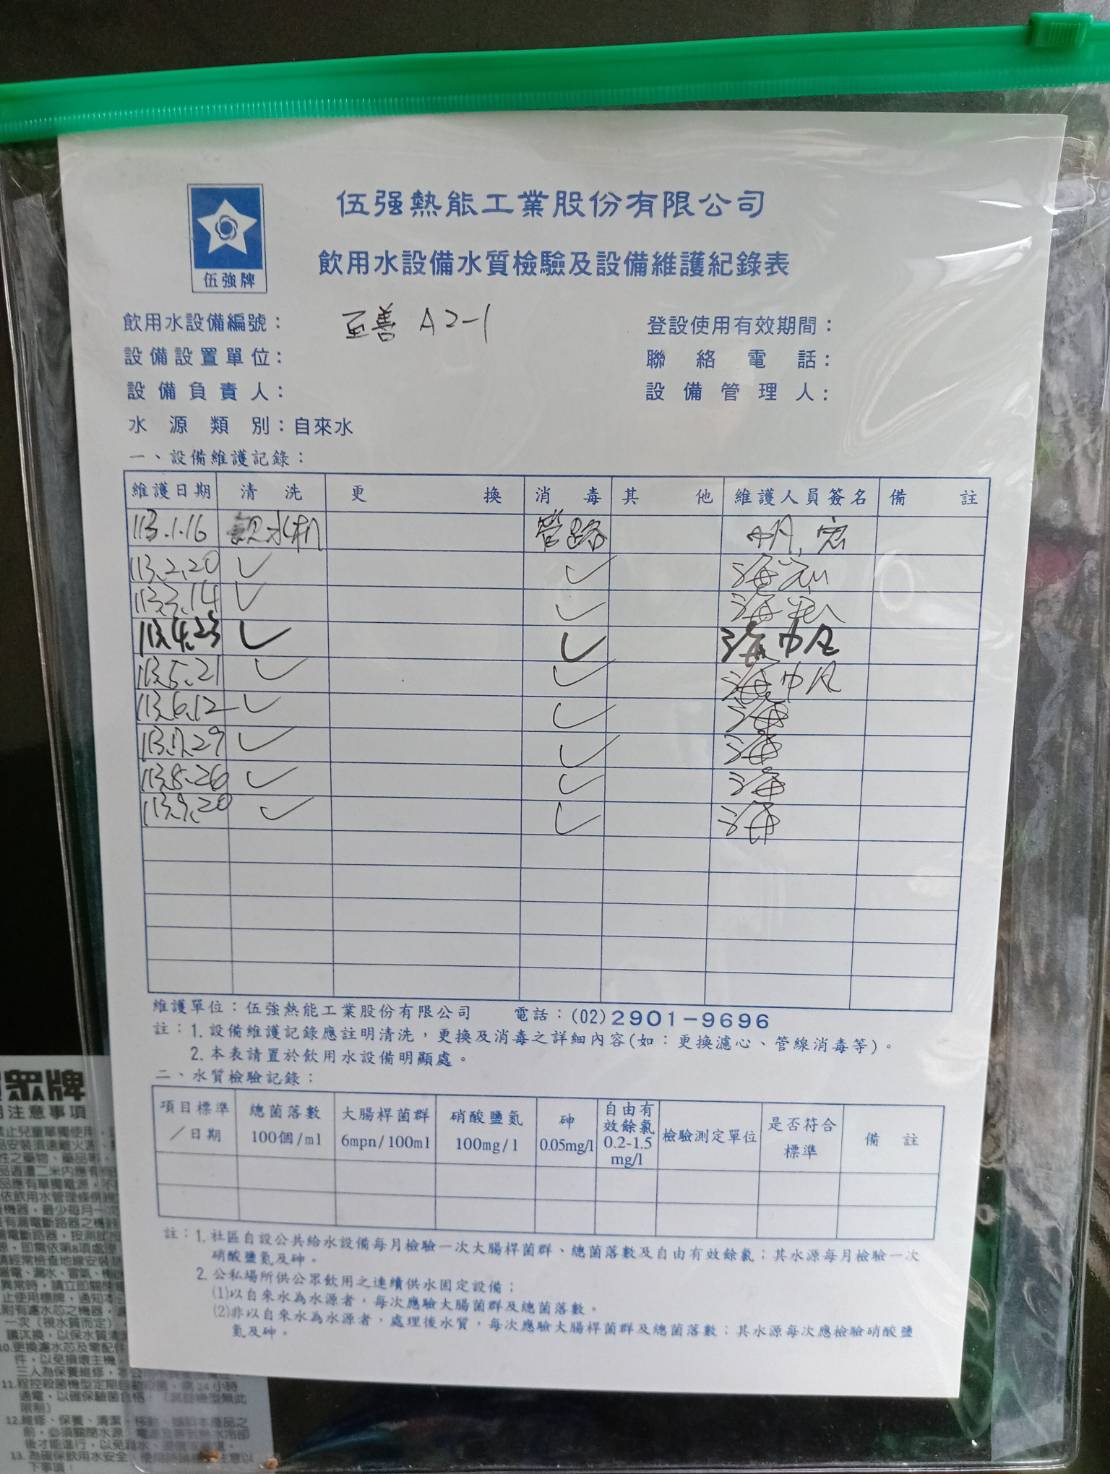 伍強牌
伍强熱能工業股份有限公司
飲用水設備水質檢驗及設備維護紀錄表
飲用水設備編號： 至善 A2-1 登設使用有效期間：
設備設置單位： 聯絡電話：
設備負責人： 設備管理人：
水源類別：自來水
一、設備維護記錄：
維護日期 清洗 更換 消毒 其他 維護人員簽名 備註
113.1.16 飲水机 管路
113.2.20 ✓ ✓
113.3.14 ✓ ✓
113.4.23 ✓ ✓
113.5.21 ✓ ✓
113.6.12 ✓ ✓ 海
113.7.29 ✓ ✓ 海
113.8.26 ✓ ✓ 海
113.9.20 ✓ ✓ 海
維護單位：伍強熱能工業股份有限公司 電話：(02)2901-9696
註：1.設備維護記錄應註明清洗，更換及消毒之詳細內容(如：更換濾心、管線消毒等)。
2.本表請置於飲用水設備明顯處。
二、水質檢驗記錄；
項目標準／日期 總菌落數 100個/ml 大腸桿菌群 6mpn/100ml 硝酸鹽氮 100mg/l 砷 0.05mg/l 自由有效餘氯 0.2-1.5 mg/l 檢驗測定單位 是否符合標準 備註
註：1.社區自設公共給水設備每月檢驗一次大腸桿菌群、總菌落數及自由有效餘氯；其水源每月檢驗一次
硝酸鹽氮及砷。
2.公私場所供公眾飲用之連續供水固定設備；
(1)以自來水為水源者，每次應驗大腸菌群及總菌落數。
(2)非以自來水為水源者，處理後水質，每次應驗大腸桿菌群及總菌落數；其水源每次應檢驗硝酸鹽
氮及砷。
眾牌
注意事項